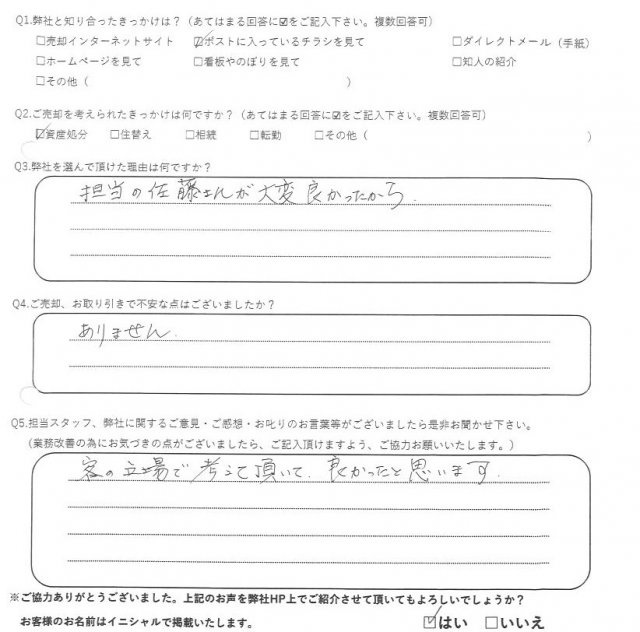 Q1.弊社と知り合ったきっかけは？（あてはまる回答に☑をご記入下さい。複数回答可）
□売却インターネットサイト ☑ポストに入っているチラシを見て □ダイレクトメール（手紙）
□ホームページを見て □看板やのぼりを見て □知人の紹介
□その他（ ）
Q2.ご売却を考えられたきっかけは何ですか？（あてはまる回答に☑をご記入下さい。複数回答可）
☑資産処分 □住替え □相続 □転勤 □その他（ ）
Q3.弊社を選んで頂けた理由は何ですか？
担当の佐藤さんが大変良かったから.
Q4.ご売却、お取り引きで不安な点はございましたか？
ありません.
Q5.担当スタッフ、弊社に関するご意見・ご感想・お叱りのお言葉等がございましたら是非お聞かせ下さい。
（業務改善の為にお気づきの点がございましたら、ご記入頂けますよう、ご協力お願いいたします。）
客の立場で考えて頂いて、良かったと思います.
※ご協力ありがとうございました。上記のお声を弊社HP上でご紹介させて頂いてもよろしいでしょうか？
お客様のお名前はイニシャルで掲載いたします。 ☑はい □いいえ